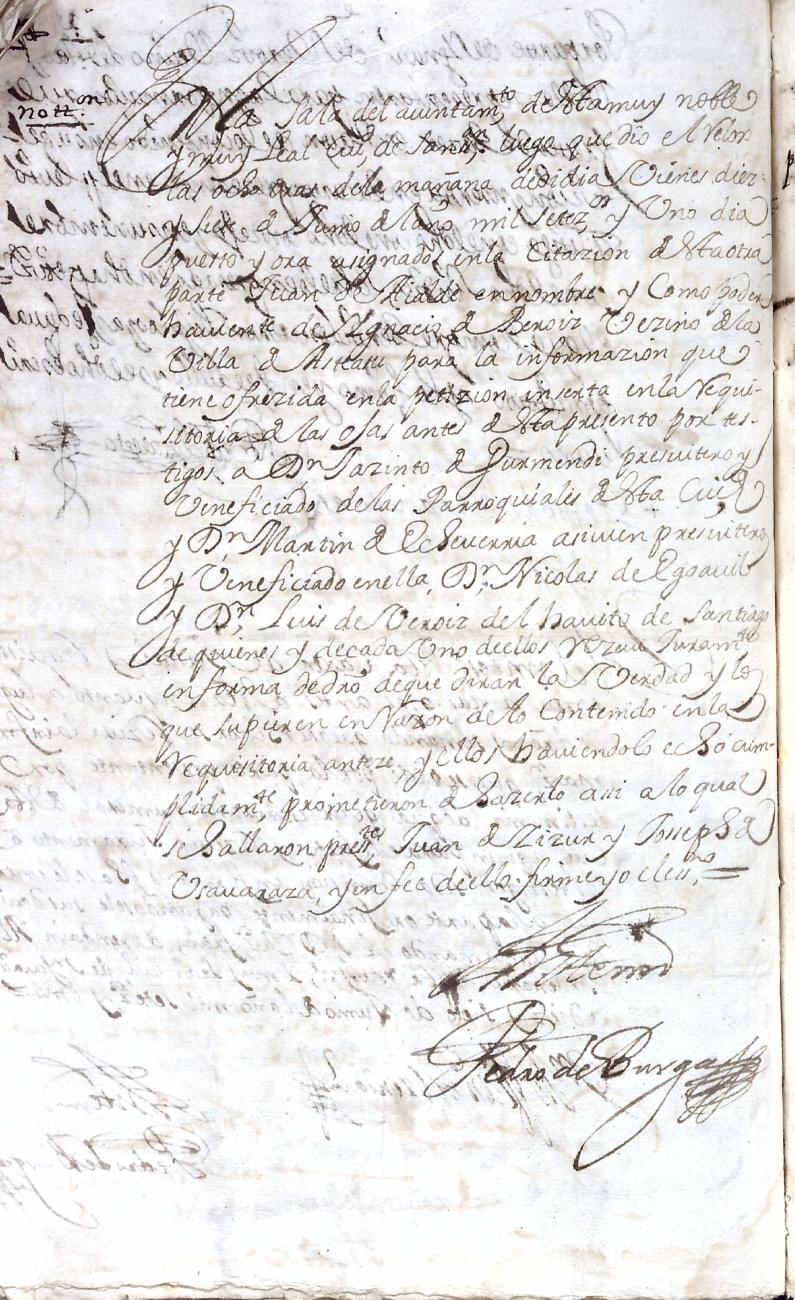 nott.on
En la Sala del aiuntam.to de sta muy noble
y muy Leal ciu.d de San luego que dio el Relox
las ocho oras de la mañana de oi dia Viernes diez
y siete de Junio de laño mil setez.os y Uno dia
puesto y ora asignados en la Citazion de sta otra
parte Juan de Aialde en nombre y Como poder
haviente de Ygnacio de Beroiz Vezino de la
Villa de Asteasu para la informazion que
tiene ofrezida en la petizion inserta en la Requi-
sitoria de las osas antes de sta presento por tes-
tigos a D.n Jazinto de Gurmendi presvitero y
Veneficiado de las Parroquiales de sta Ciu.d
y D.n Martin de Echeverria asi vien presvitero
y Veneficiado en ella, D.n Nicolas de Egoavil
y D.n Luis de Veroiz del havito de Santiago
de quienes y de cada Uno de ellos rezeui Juram.to
en forma de dro de que diran la Verdad y lo
que supieren en Razon de lo Contenido en la
Requisitoria anteze, y ellos haviendolo echo cum-
plidam.te prometieron de hazerlo assi a lo qual
se hallaron pres.tes Juan de Zizur y Joseph de
Usavaraza, y en fee de ello firme yo el ess.no =
Pedro de Burga